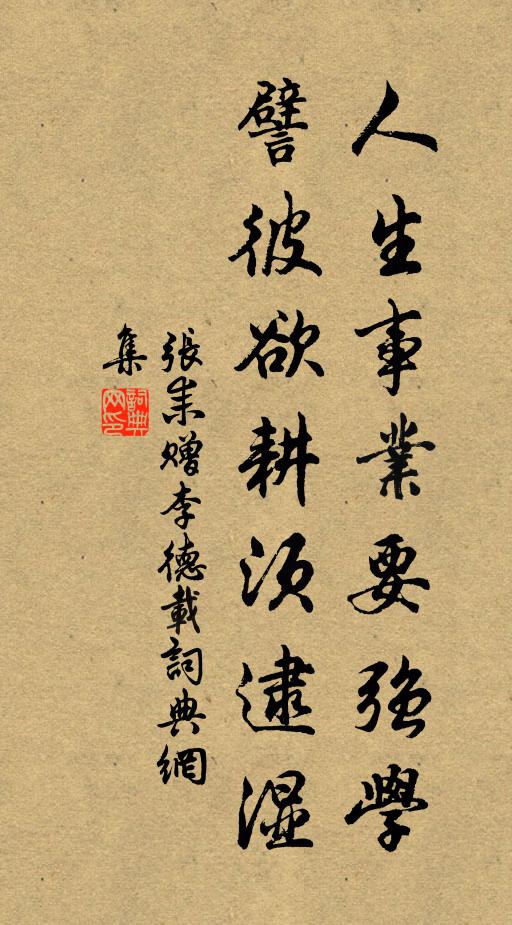 人生事業要強學
譬彼欲耕須逮濕
張耒贈李德載詞典網
集
詞典
網印